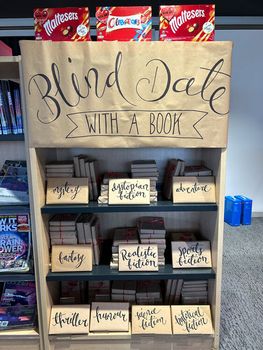 Maltesers
Celebrations
Maltesers
Blind Date
WITH A BOOK
mystery
dystopian fiction
adventure
fantasy
Realistic
fiction
Sports
fiction
thriller
humour
fiction
historical
fiction
HOW IT
WORKS